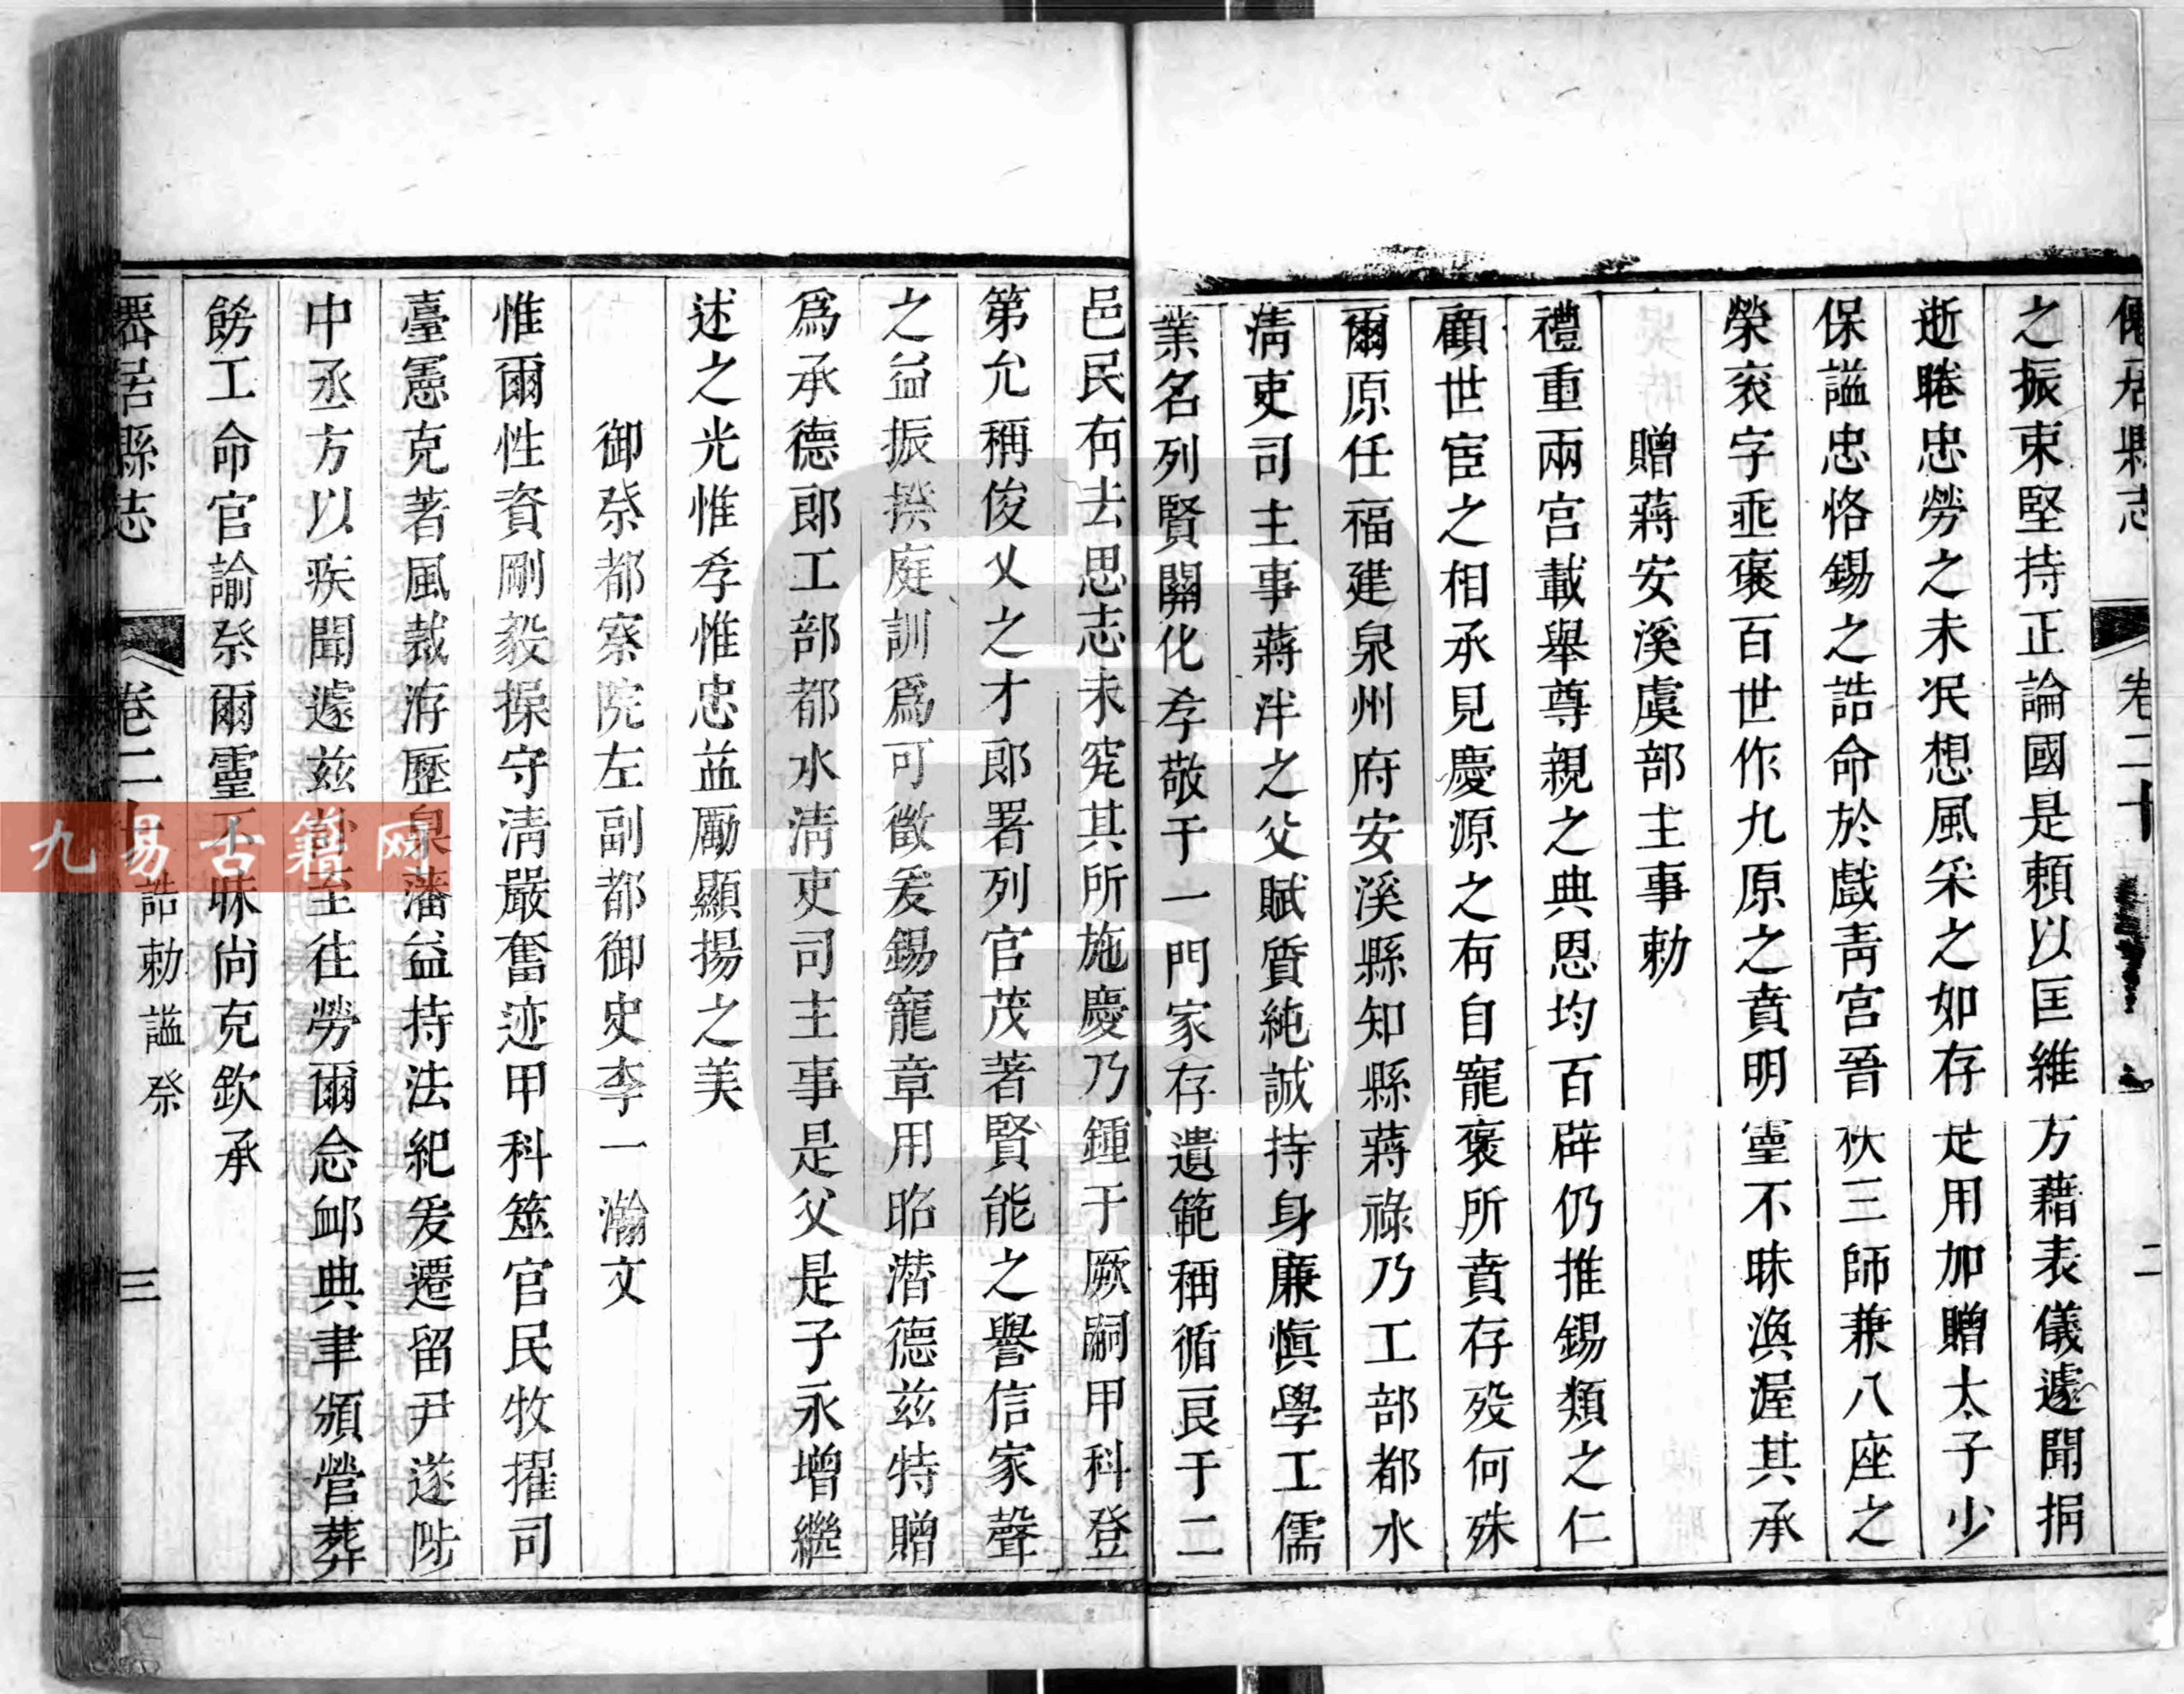 僊居縣志 卷二十 二
之振束堅持正論國是賴以匡維方藉表儀遽聞捐
逝睠忠勞之未泯想風采之如存是用加贈太子少
保謚忠恪錫之誥命於戲青宮晉秩三師兼八座之
榮衮字垂褒百世作九原之賁明靈不昧渙渥其承
贈蔣安溪虞部主事勅
禮重兩宮載舉尊親之典恩均百辟仍推錫類之仁
顧世宦之相承見慶源之有自寵褒所賁存殁何殊
爾原任福建泉州府安溪縣知縣蔣祿乃工部都水
淸吏司主事蔣泮之父賦質純誠持身廉愼學工儒
業名列賢關化孝敬于一門家存遺範稱循良于二
邑民有去思志未究其所施慶乃鍾于厥嗣甲科登
第允稱俊乂之才郎署列官茂著賢能之譽信家聲
之益振揆庭訓爲可徵爰錫寵章用昭潛德茲特贈
爲承德郎工部都水淸吏司主事是父是子永增繼
述之光惟孝惟忠益勵顯揚之美
御祭都察院左副都御史李一瀚文
惟爾性資剛毅操守淸嚴奮迹甲科筮官民牧擢司
臺憲克著風裁洊歷臬藩益持法紀爰遷留尹遂陟
中丞方以疾聞遽茲訃至往勞爾念卹典聿頒營葬
飭工命官諭祭爾靈不昧尚克欽承
僊居縣志 卷二十 誥勅謚祭 三
九易古籍网